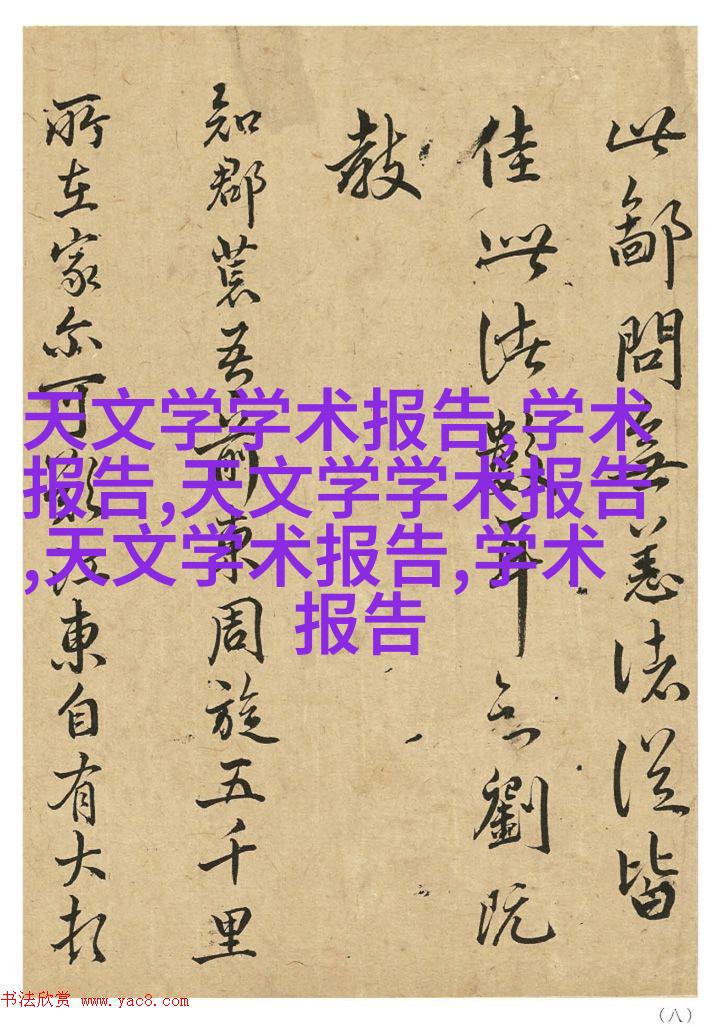 此鄙問無恙諸從皆
佳此數年劉既
教
知郡荒吾前東周旋五千里
所在家尒可歎江東自有大
天文学学术报告,学术
报告,天文学学术报告
,天文学术报告,学术
报告
书法欣赏 www.yac8.com
（八）